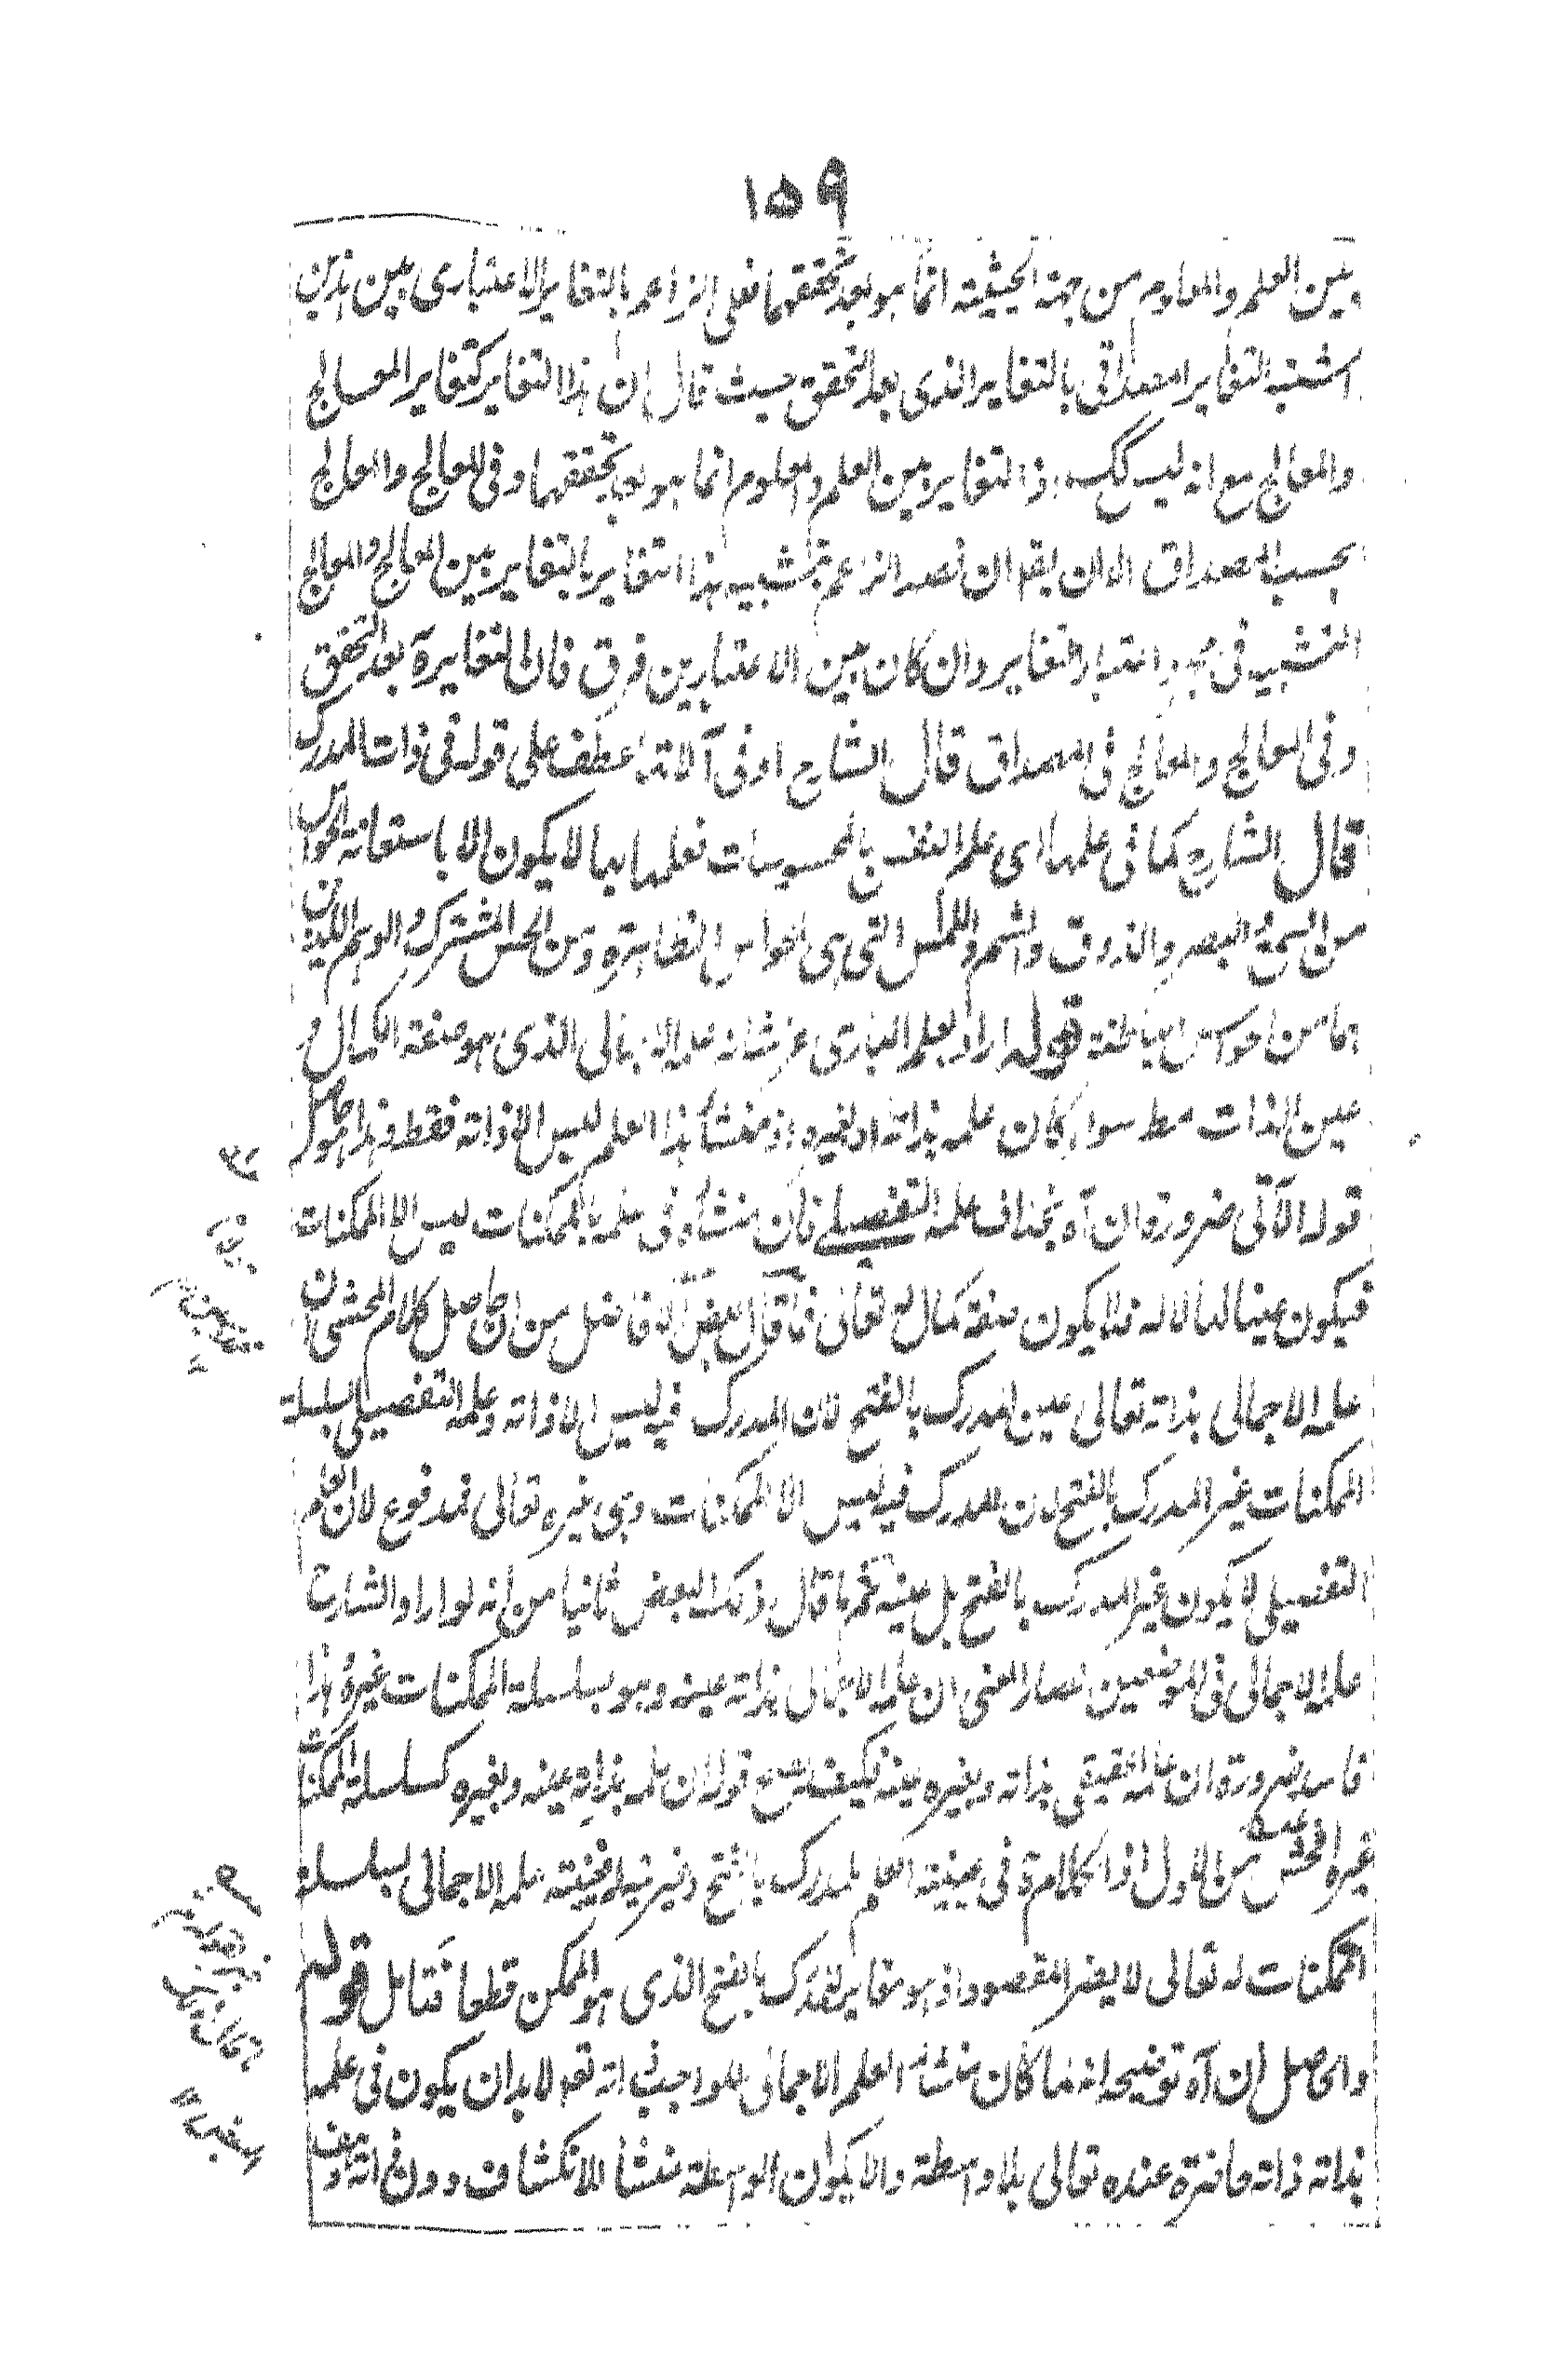 ١٥٩
وبين العلم والمعلوم من جهة الحيثية انما هو بعد تحققهما فعلى الزاعم بالتغاير الاعتبارى بين هذين
اشتبه التغاير المصداقى بالتغاير الذى بعد التحقق حيث قال ان هذا التغاير كتغاير المعالج
والمعالج مع انه ليس كك اذ التغاير بين العلم والمعلوم انما هو بعد تحققهما وفى المعالج والمعالج
بحسب المصداق الا ان يقول ان قصد الزاعم من تشبيه هذا التغاير بالتغاير بين المعالج والمعالج
التشبيه فى مجرد اعتبار التغاير وان كان بين الاعتبارين فرق فان المتغايرة بعد التحقق
وفى المعالج والمعالج فى المصداق قال الشارح او فى آلاتها عطف على قوله فى ذات المدرك
قال الشارح كما فى علمها اى علم النفس بالمحسوسات فعلمها بها لا يكون الا باستعانة الحواس
من السمع والبصر والذوق والشم واللمس التى هى الحواس الظاهرة ومن الحس المشترك والوهم اللذين
هما من الحواس الباطنة قوله اراد بعلم البارى عز شانه علمه الاجمالى الذى هو صفة الكمال و
عين الذات مط سواء كان علمه بذاته او لغيره اذ منشأ هذا العلم ليس الا ذاته فقط وهذا هو حاصل
قوله الآتى ضرورة ان آه بخلاف علمه التفصيلى فان منشأه فى علمه بالممكنات ليس الا الممكنات
فيكون عينا لها لا له فلا يكون صفة كمال له تعالى فما قال بعض الافاضل من ان حاصل كلام المحشى ان
علمه الاجمالى بذاته تعالى عين المدرك بالفتح لان المدرك فيه ليس الا ذاته وعلمه التفصيلى بسلسلة
الممكنات غير المدرك بالفتح لان المدرك فيه ليس الا الممكنات وهى غيره تعالى فمدفوع لان العلم
التفصيلى لا يكون غير المدرك بالفتح بل عينه ثم ما قال ذلك البعض ثانيا من انه لو اراد الشارح
علمه الاجمالى فى الموضعين فصار المعنى ان علمه الاجمالى بذاته عينه وهو بسلسلة الممكنات غيره هذا
فاسد ضرورة ان علمه الحقيقى بذاته وبغيره عينه فكيف يصح قوله ان علمه بذاته عينه وبغيره كسلسلة الممكنات
غيره افحش من الاول اذ الكلام فى عينية العلم للمدرك بالفتح وغيريته له فعينية علمه الاجمالى بسلسلة
الممكنات له تعالى لا يضر المقصود اذ هو مغاير للمدرك بالفتح الذى هو الممكن قطعا فتامل قوله
والحاصل ان آه توضيحه انه لما كان منشأ العلم الاجمالى للواجب ذاته تعم لا بد ان يكون فى علمه
بذاته ذاته حاضرة عنده تعالى بلا واسطة والا يكون الواسطة منشأ للانكشاف دون ذاته